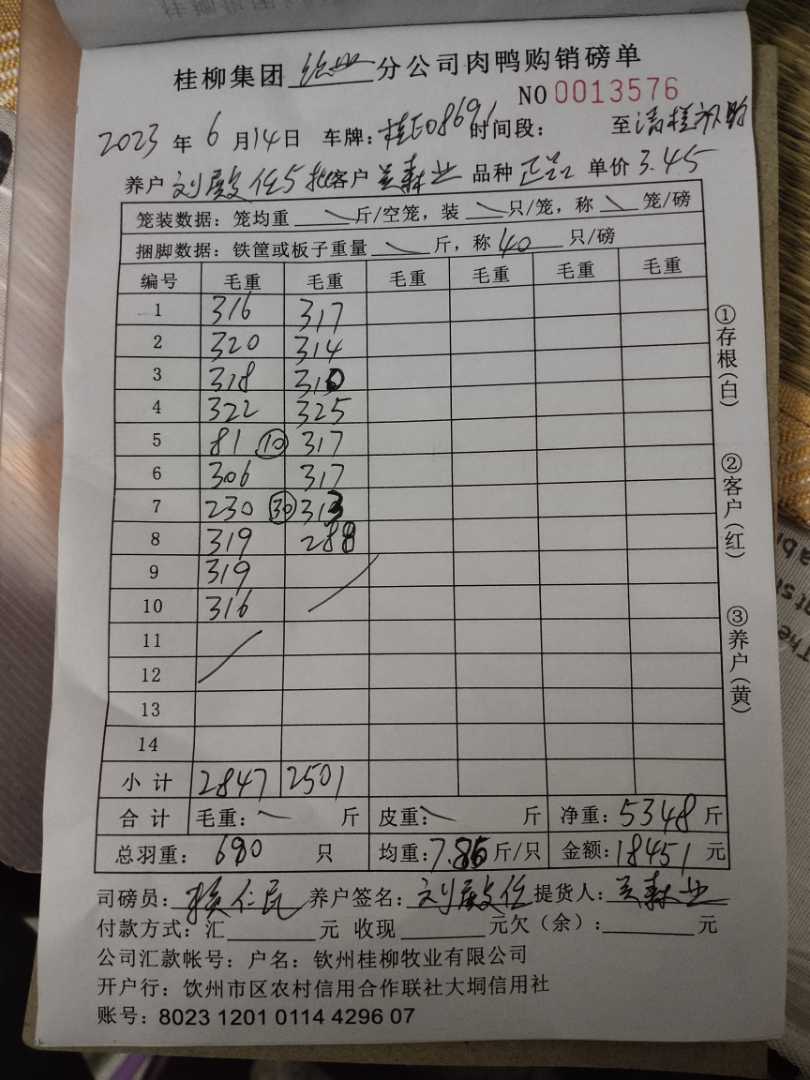 桂柳集团 钦州 分公司肉鸭购销磅单
NO 0013576
2023 年 6 月 14 日 车牌：桂E08691 时间段： 至 清桂补助
养户 刘殿任5批 客户 吴森业 品种 正品 单价 3.45
笼装数据：笼均重 斤/空笼，装 只/笼，称 笼/磅
捆脚数据：铁筐或板子重量 斤，称 40 只/磅
编号 毛重 毛重 毛重 毛重 毛重 毛重
1 316 317
2 320 314
3 318 310
4 322 325
5 81 ⑩ 317
6 306 317
7 230 ㉚ 313
8 319 288
9 319
10 316
11
12
13
14
小计 2847 2501
合计 毛重： 斤 皮重： 斤 净重：5348 斤
总羽重：680 只 均重：7.86 斤/只 金额：18451 元
司磅员： 仁民 养户签名：刘殿任 提货人：吴森业
付款方式：汇 元 收现 元欠（余）： 元
公司汇款帐号：户名：钦州桂柳牧业有限公司
开户行：钦州市区农村信用合作联社大垌信用社
账号：8023 1201 0114 4296 07
①存根（白）
②客户（红）
③养户（黄）